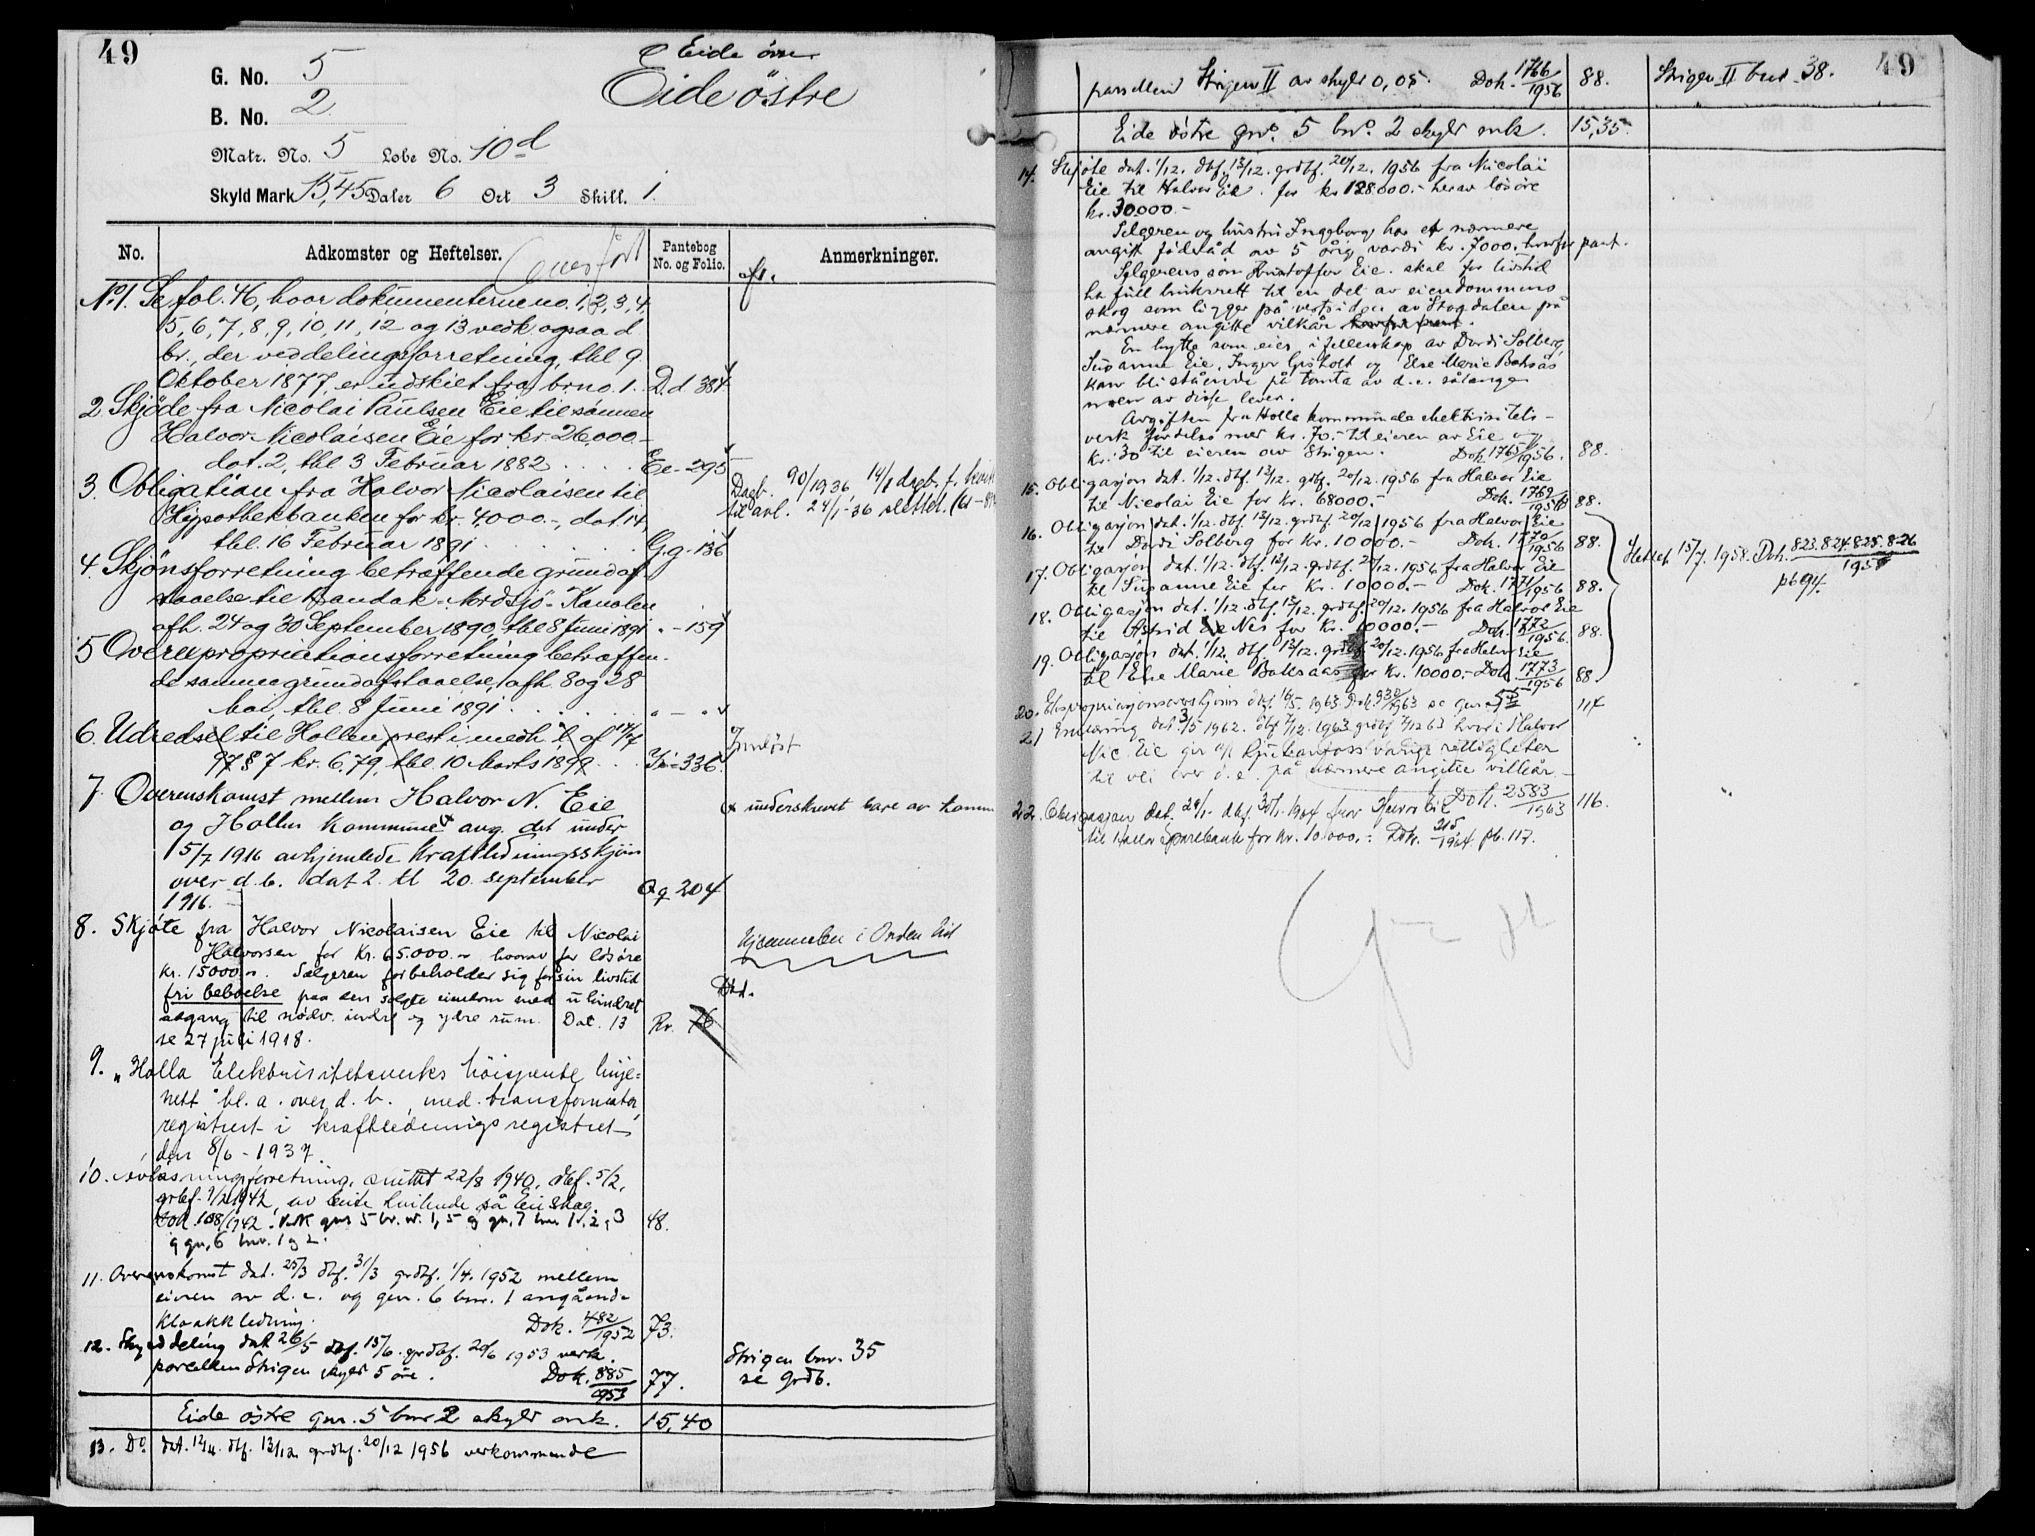 49
Eide övre
Eide östre
G. No. 5
B. No. 2
Matr. No. 5 Løbe No. 10d
Skyld Mark 15,45 Daler 6 Ort 3 Skill. 1.
No. Adkomster og Heftelser. Pantebog No. og Folio. Anmerkninger.
Overført
afl.
No 1. Se fol. 46, hvor dokumenterne no. 1, 2, 3, 4,
5, 6, 7, 8, 9, 10, 11, 12 og 13 vedk. ogsaa d.
br., der ved delingsforretning, tbl 9.
Oktober 1877 er udskiet fra brno. 1. D.d. 384
2. Skjöde fra Nicolai Paulsen Eie til sönnen
Halvor Nicolaisen Eie for kr 26,000.-
dat. 2, tbl 3 Februar 1882 Ee - 295
3. Obligation fra Halvor Nicolaisen til
Hypothekbanken for kr 4000.-, dat. 14
tbl. 16 Februar 1891 G.g. 136
Dagb. 90/1936 14/1 dagb. f.
til avl. 24/1-36 slettet.
4. Skjönsforretning betræffende grundaf-
staaelse til Bandak-Nordsjö-Kanalen
afh. 24 og 30 September 1890, tbl 8 Juni 1891 " - 159
5 Overexpropriationsforretning betræffen-
de samme grundafstaaelse, afh. 8 og 28
Mai, tbl. 8 Juni 1891 " - "
6. Udredsel til Hollen prest i medh. l. af 14/7
97 § 7 kr. 6,79, tbl. 10 Marts 1899 - 336.
Indløst
7. Overenskomst mellem Halvor N. Eie
og Hollen Kommune x ang. det under
15/7 1916 avhjemlede Kraftledningsskjön
over d. b. dat 2. tl 20. september
1916. Qq 204
x underskrevet bare av komm
8. Skjöte fra Halvor Nicolaisen Eie til Nicolai
Halvorsen for Kr. 65.000.- hvorav for lösöre
kr. 15000.-. Sælgeren forbeholder sig for sin livstid
fri beboelse paa den solgte eiendom med uhindret
adgang til nödv. indre og ydre rum. Dat. 13 Rr. 76
se 27 juli 1918.
Hjemmelen i Orden
9. "Holla Elektrisitetsverks höispente linje-
nett" bl. a. over d. b., med transformator,
registrert i kraftledningsregistret
den 8/6 - 1937.
10. Avløsningsforretning, sluttet 22/8 1940, dbf. 5/2,
grbf. 9/2 1942, av beite hvilende på Eie skog.
Dok. 108/1942. Vedk gnr 5 br. nr. 1, 5 og gn. 7 bnr 1, 2, 3 48.
og gn. 6 bnr. 1 og 2.
11. Overenskomst dat. 25/3 dbf. 31/3 grdbf. 1/4. 1952 mellem
eieren av d. e. og gnr. 6 bnr. 1 angående
kloakkledning. Dok. 482/1952 73.
12. Skylddeling dat 26/5 dbf. 15/6. grdbf. 20/6 1953 vedk.
parcellen Strigen skyld 5 öre. Dok. 885/1953 77.
Strigen bnr. 35
se grdb.
Eide östre gnr. 5 bnr 2 skyld mk. 15,40
13. Do. dat. 12/11. dbf. 13/12. grdbf. 20/12 1956 vedkommende
49
parsellen Strigen II av skyld 0,05. Dok. 1766/1956 88. Strigen II bnr. 38.
Eide östre gno. 5 bno. 2 skyld mk. 15,35.
14. Skjøte dat. 1/12. dbf. 13/12. grdbf. 20/12. 1956 fra Nicolai
Eie til Halvor Eie for kr 128.000.- herav lösöre
kr. 30.000.-
Selgeren og hustru Ingeborg har et nærmere
angitt föderåd av 5 årig verdi kr. 7000.- hvorfor pant.
Selgerens sön Kristoffer Eie skal for livstid
ha full bruksrett til en del av eiendommens
skog som ligger på vestsiden av Stogdalen på
nærmere angitte vilkår hvorfor pant.
En hytte som eies i fellesskap av Dordi Solberg,
Susanne Eie, Inger Grisholt og Else Marie Baksås
kan bli stående på tomta av d. e. sålenge
noen av disse lever.
Avgiften fra Holla kommunale elektrisitets-
verk fordeles med kr. 70.- til eieren av Eie og
kr. 30 til eieren av Strigen. Dok 1765/1956. 88.
15. Obligasjon dat. 1/12. dbf. 13/12. grdbf. 20/12. 1956 fra Halvor Eie
til Nicolai Eie for kr. 68000.- Dok. 1769/1956 88.
16. Obligasjon dat. 1/12. dbf. 13/12. grdbf. 20/12 1956 fra Halvor Eie
til Dordi Solberg for kr. 10000.- Dok. 1770/1956 88.
17. Obligasjon dat. 1/12. dbf. 13/12. grdbf. 20/12. 1956 fra Halvor Eie
til Susanne Eie for kr. 10000.- Dok. 1771/1956 88.
18. Obligasjon dat. 1/12. dbf. 13/12. grdbf. 20/12. 1956 fra Halvor Eie
til Astrid Eie Nes for kr. 10000.- Dok. 1772/1956. 88.
19. Obligasjon dat. 1/12. dbf. 13/12. grdbf. 20/12. 1956 fra Halvor Eie
til Else Marie Baksaas for kr. 10000.- Dok. 1773/1956 88.
Slettet 15/7. 1958. Dok. 823.824.825.826/1958
pb 94.
20. Ekspropriasjonsoverskjönn dat. 16/5. 1963. Dok. 930/1963 se gnr. 114
21 Erklæring dat. 3/5 1962. dbf 7/12. 1963. grdbf. 7/12 63 hvori Halvor
Nic. Eie gir a/s Rjukanfoss varige rettigheter
til vei over d. e. på nærmere angitte vilkår.-
Dok. 2583/1963 116.
22. Obligasjon dat. 29/1. dbf. 30/1. 1964 fra Halvor Eie
til Holla Sparebank for kr. 10.000.-: Dok. 215/1964 pb. 117.